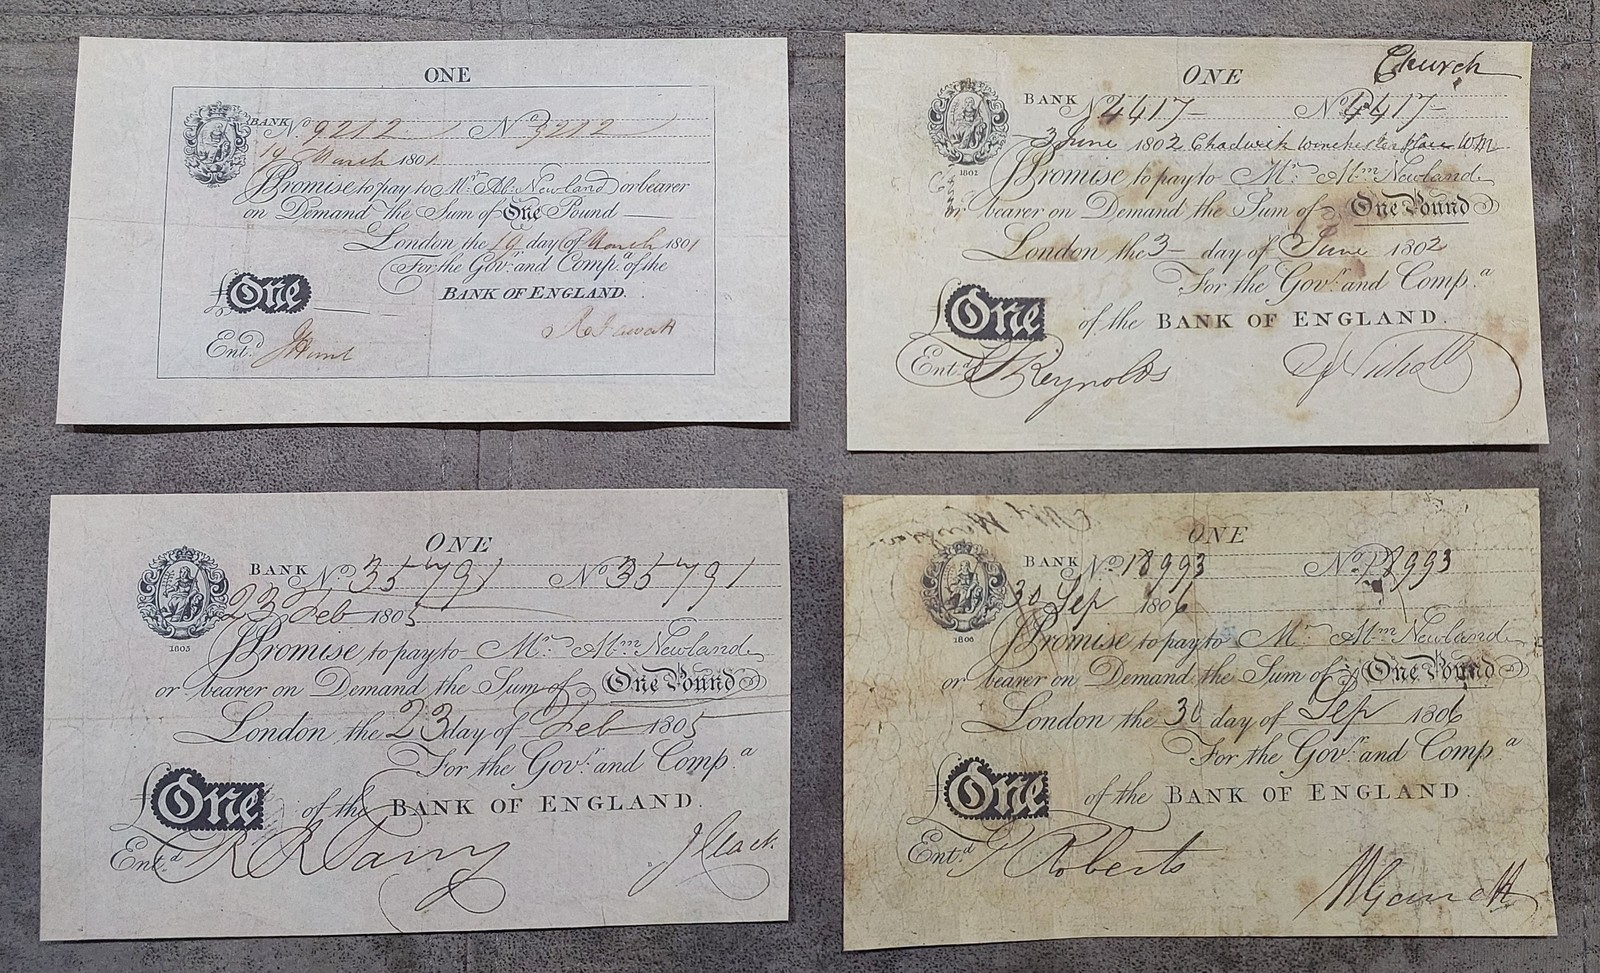 ONE
BANK No. 9212 No. 9212
19 March 1801
I Promise to pay to Mr. Ab: Newland or bearer
on Demand the Sum of One Pound
London the 19 day of March 1801
For the Govr. and Compa. of the
BANK OF ENGLAND.
£ One
Entd. J Hunt
1801
ONE Church
BANK No 4417 No 4417
3 June 1802 Chadwick Winchester Place
1802
I Promise to pay to Mr. Abm Newland
or bearer on Demand the Sum of One Pound
London the 3 day of June 1802
For the Govr. and Compa.
£ One of the BANK OF ENGLAND.
Entd. Reynolds
ONE
BANK No. 35791 No 35791
23 Feb 1805
1805
I Promise to pay to Mr. Abm Newland
or bearer on Demand the Sum of One Pound
London the 23 day of Feb 1805
For the Govr. and Compa.
£ One of the BANK OF ENGLAND.
Entd.
ONE
BANK No. 18993 No. 18993
30 Sep 1806
1806
I Promise to pay to Mr. Abm Newland
or bearer on Demand the Sum of One Pound
London the 30 day of Sep 1806
For the Govr. and Compa.
£ One of the BANK OF ENGLAND.
Entd. Roberts